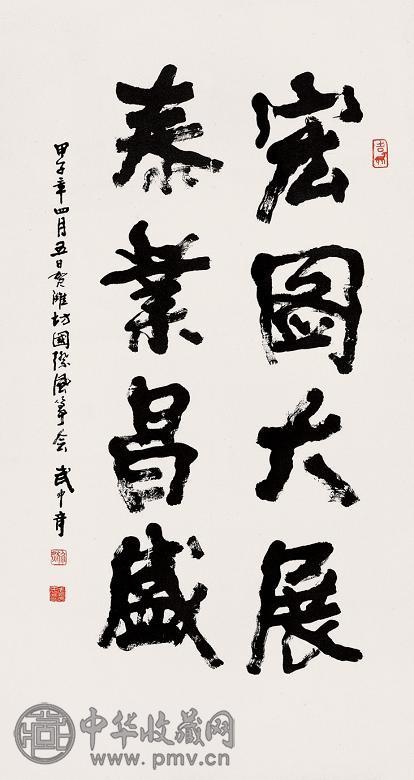 宏图大展
泰业昌盛
甲子年四月五日贺潍坊国际风筝会 武中奇
中华收藏网
www.pmv.cn